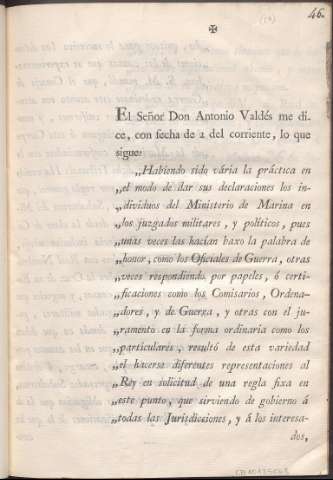 46.
✠
El Señor Don Antonio Valdés me di-
ce, con fecha de 2 del corriente, lo que
sigue:
„Habiendo sido vária la práctica en
„el modo de dar sus declaraciones los in-
„dividuos del Ministerio de Marina en
„los juzgados militares, y políticos, pues
„unas veces las hacían baxo la palabra de
„honor, como los Oficiales de Guerra, otras
„veces respondiendo por papeles, ó certi-
„ficaciones como los Comisarios, Ordena-
„dores, y de Guerra, y otras con el ju-
„ramento en la forma ordinaria como los
„particulares, resultó de esta variedad
„el hacerse diferentes representaciones al
„Rey en solicitud de una regla fixa en
„este punto, que sirviendo de gobierno á
„todas las Jurisdicciones, y á los interesa-
dos,